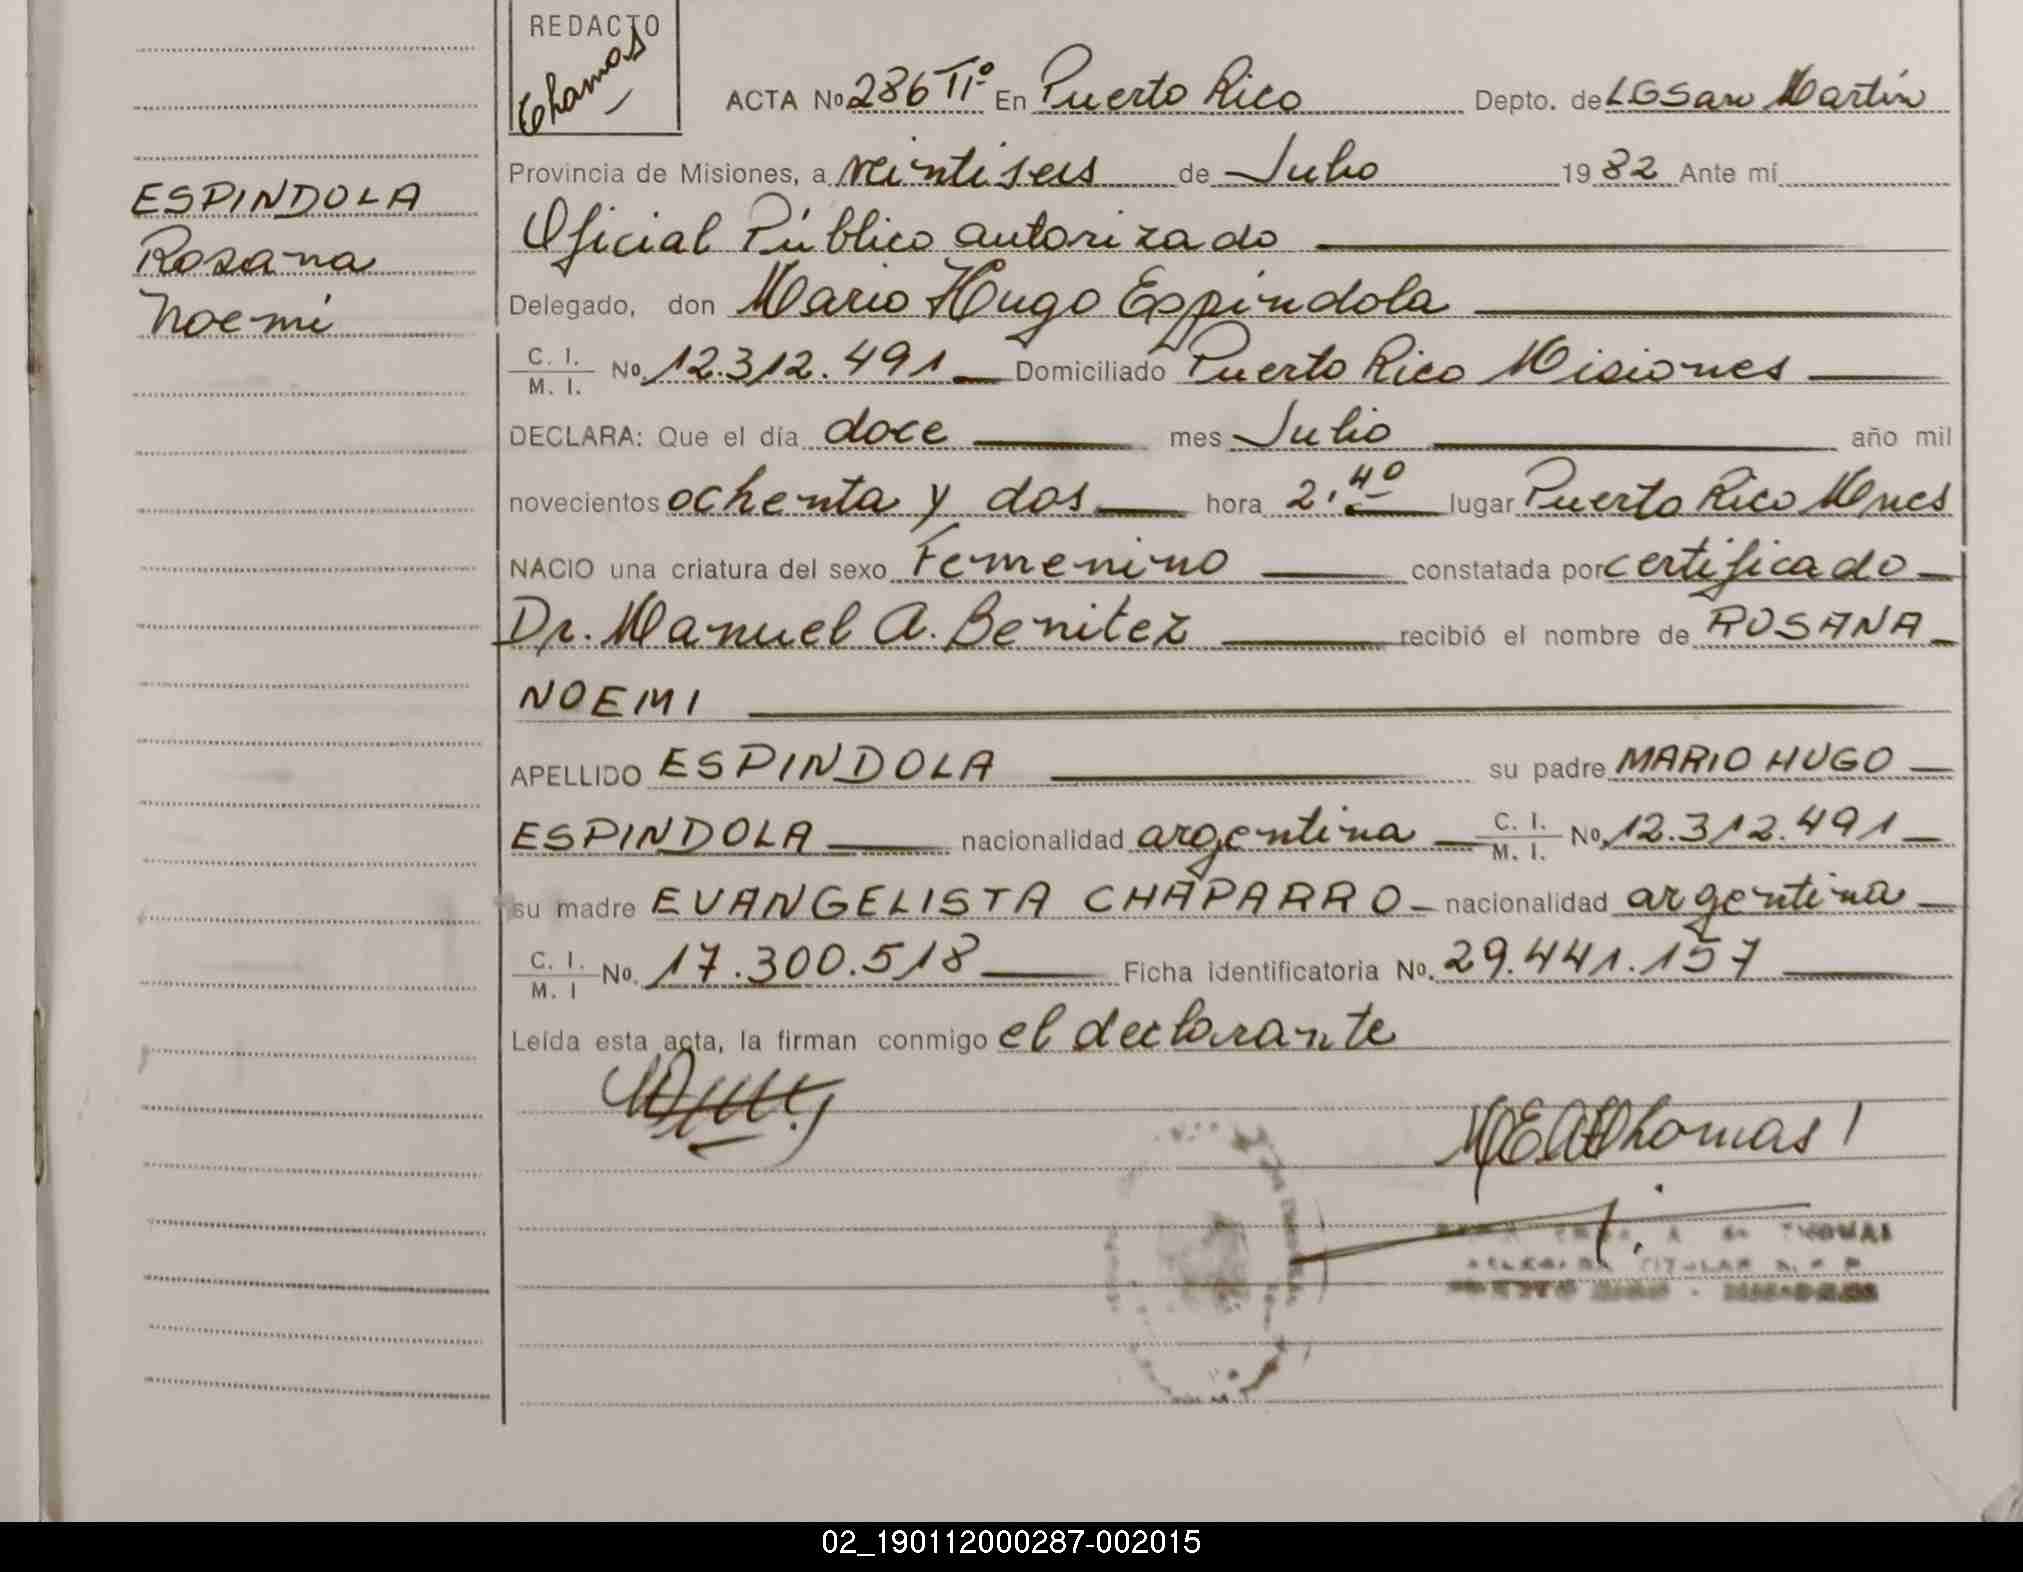 REDACTO
Thomas
ACTA No 286 TIº En Puerto Rico Depto. de LGSan Martín
Provincia de Misiones, a veintiseis de Julio 1982 Ante mí
Oficial Público autorizado
Delegado, don Mario Hugo Espindola
C. I. / M. I. No. 12.312.491 Domiciliado Puerto Rico Misiones
DECLARA: Que el día doce mes Julio año mil
novecientos ochenta y dos hora 2.40 lugar Puerto Rico Mnes
NACIO una criatura del sexo Femenino constatada por certificado
Dr. Manuel A. Benitez recibió el nombre de ROSANA
NOEMI
APELLIDO ESPINDOLA su padre MARIO HUGO
ESPINDOLA nacionalidad argentina C. I. / M. I. No. 12.312.491
su madre EVANGELISTA CHAPARRO nacionalidad argentina
C. I. / M. I No. 17.300.518 Ficha identificatoria No. 29.441.157
Leída esta acta, la firman conmigo el declarante
Thomas
THOMAS
TITULAR
ESPINDOLA
Rosana
Noemi
02_190112000287-002015